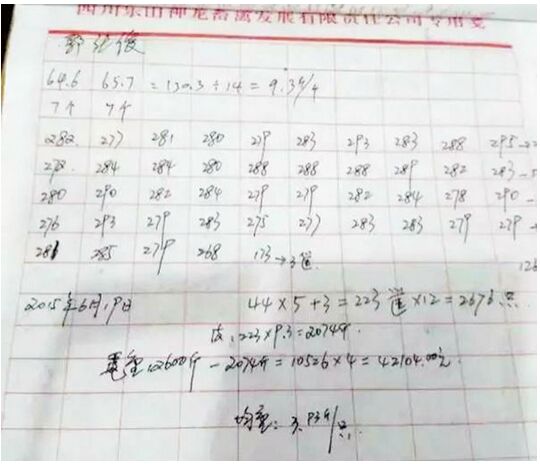 四川乐山神龙畜禽发展有限责任公司专用笺
64.6 65.7 = 130.3 ÷ 14 = 9.3斤/个
7个 7个
282 277 281 280 279 283 293 283 288 295
272 284 284 280 288 288 288 289 282 283
280 290 282 284 279 279 282 284 278 290
276 293 279 283 275 277 283 283 279 279
281 285 279 268 173 → 3筐
2015年6月19日 44 × 5 + 3 = 223筐 × 12 = 2676只
皮: 223 × 9.3 = 2074斤
毛重: 12600斤 - 2074斤 = 10526 × 4 = 42104.00元
均重: 3.93斤/只